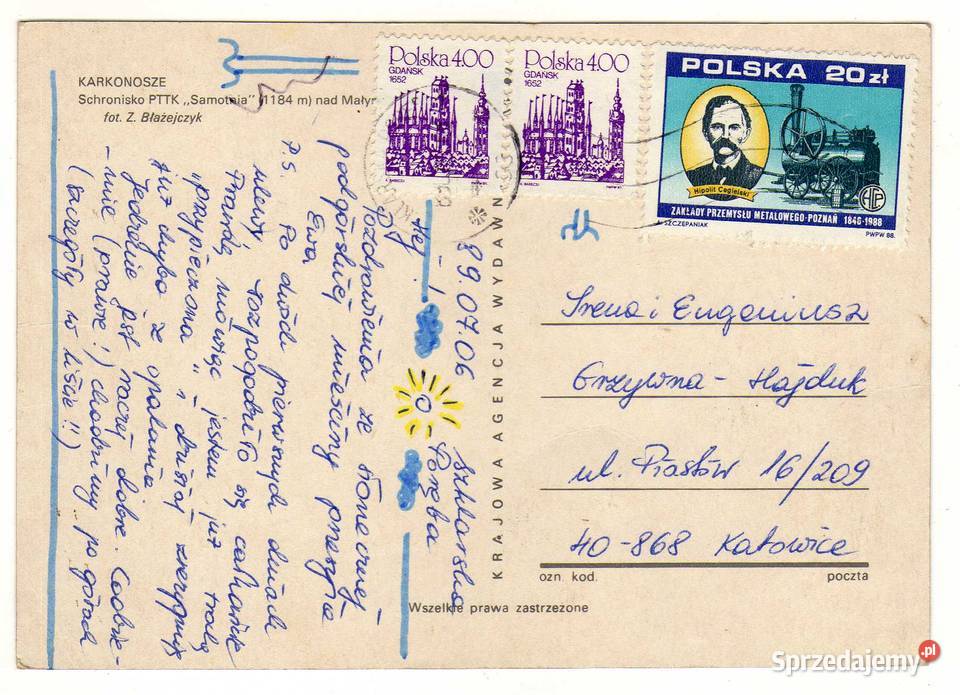 KARKONOSZE
Schronisko PTTK „Samotnia" (1184 m) nad Małym
fot. Z. Błażejczyk
Polska 4.00
GDAŃSK
1652
Polska 4.00
GDAŃSK
1652
POLSKA 20 zł
Hipolit Cegielski
HCP
ZAKŁADY PRZEMYSŁU METALOWEGO-POZNAŃ 1846-1988
SZCZEPANIAK
PWPW 88.
KRAJOWA AGENCJA WYDAWN
89.07.06 Szklarska
Poręba
Hej!
Pozdrowienia ze słonecznej
podgórskiej mieściny przesyła
Ewa
P.S. Po dwóch pierwszych dniach
ulewy rozpogodziło się całkiem
Prawdę mówiąc jestem już trochę
„przypieczona" i dzisiaj zrezygnuję
już chyba z opalania.
Jedzenie jest raczej dobre. Codzie-
-nnie (prawie!) chodzimy po górach
(szczegóły w liście!!)
Irena i Eugeniusz
Grzywna-Hajduk
ul. Piastów 16/209
40-868 Katowice
ozn. kod.
poczta
Wszelkie prawa zastrzeżone
Sprzedajemy.pl